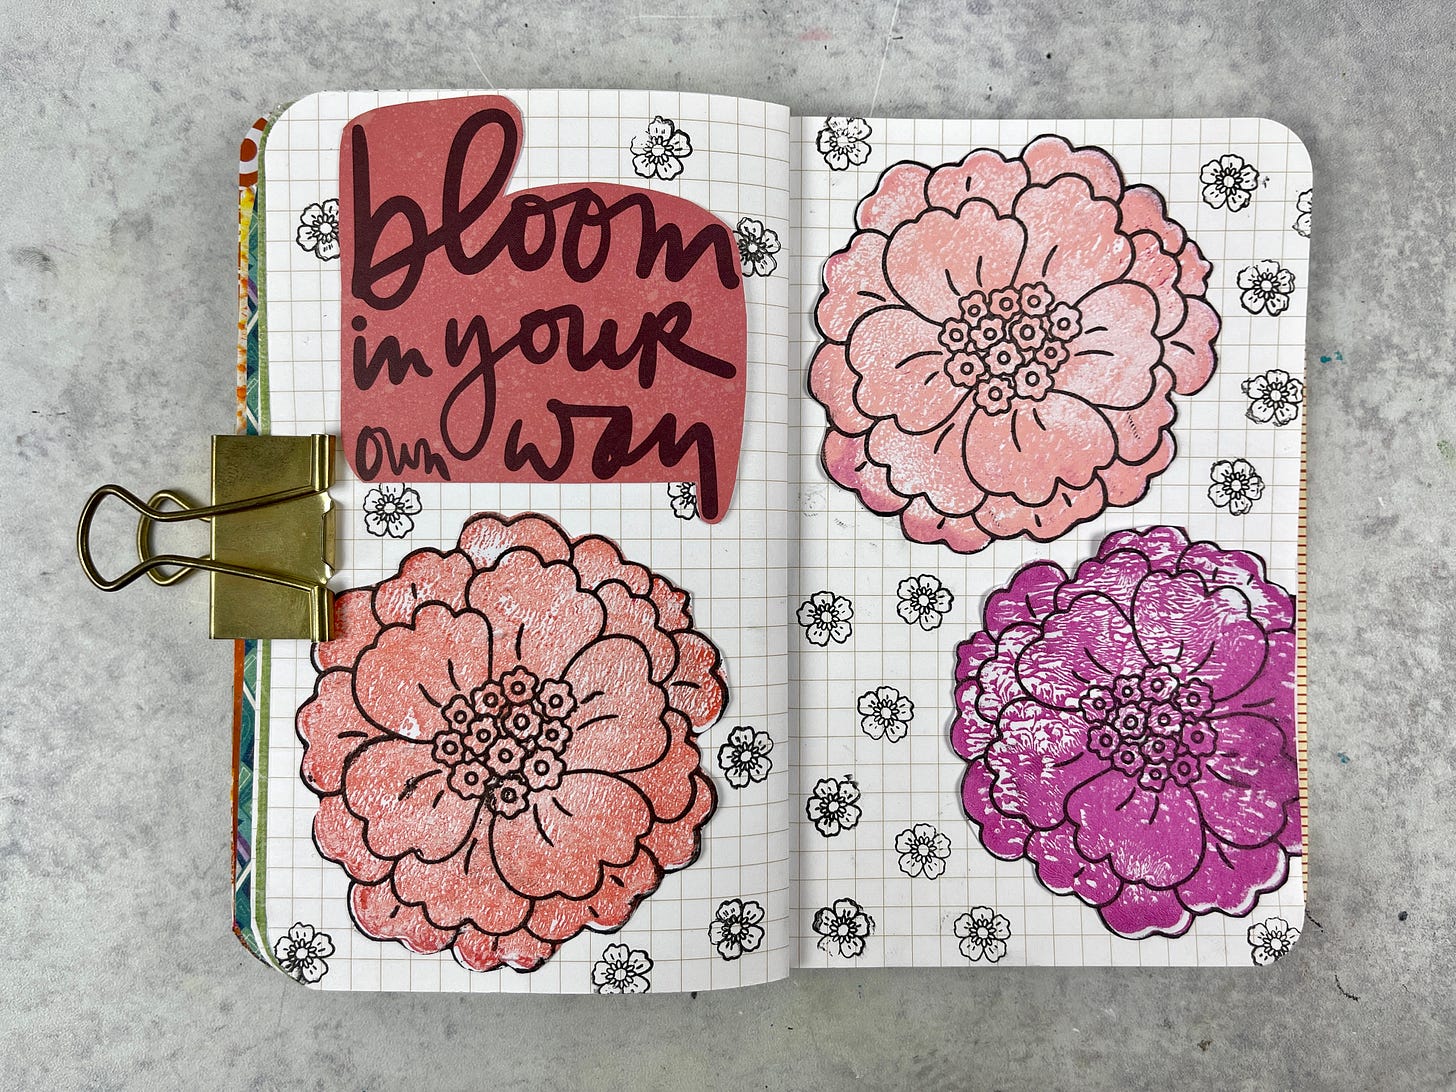 bloom
in your
own way